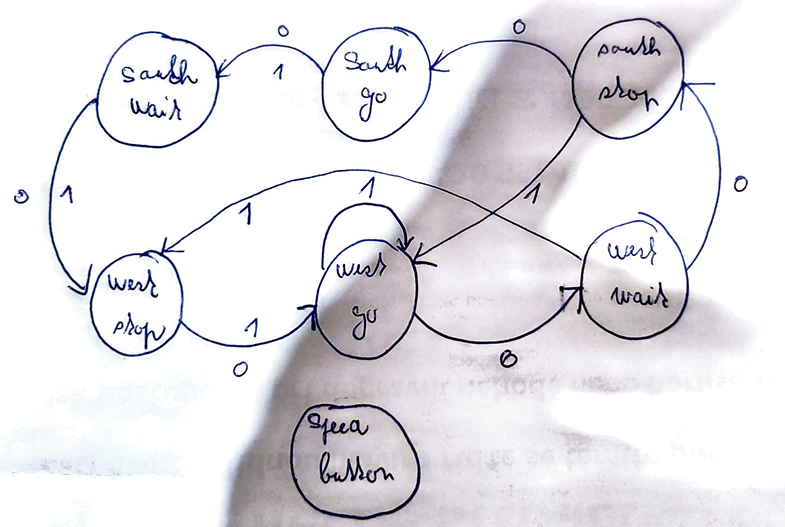 0
0
1
South
wait
South
go
south
stop
0
1
1
1
1
0
west
stop
west
go
west
wait
1
0
0
button